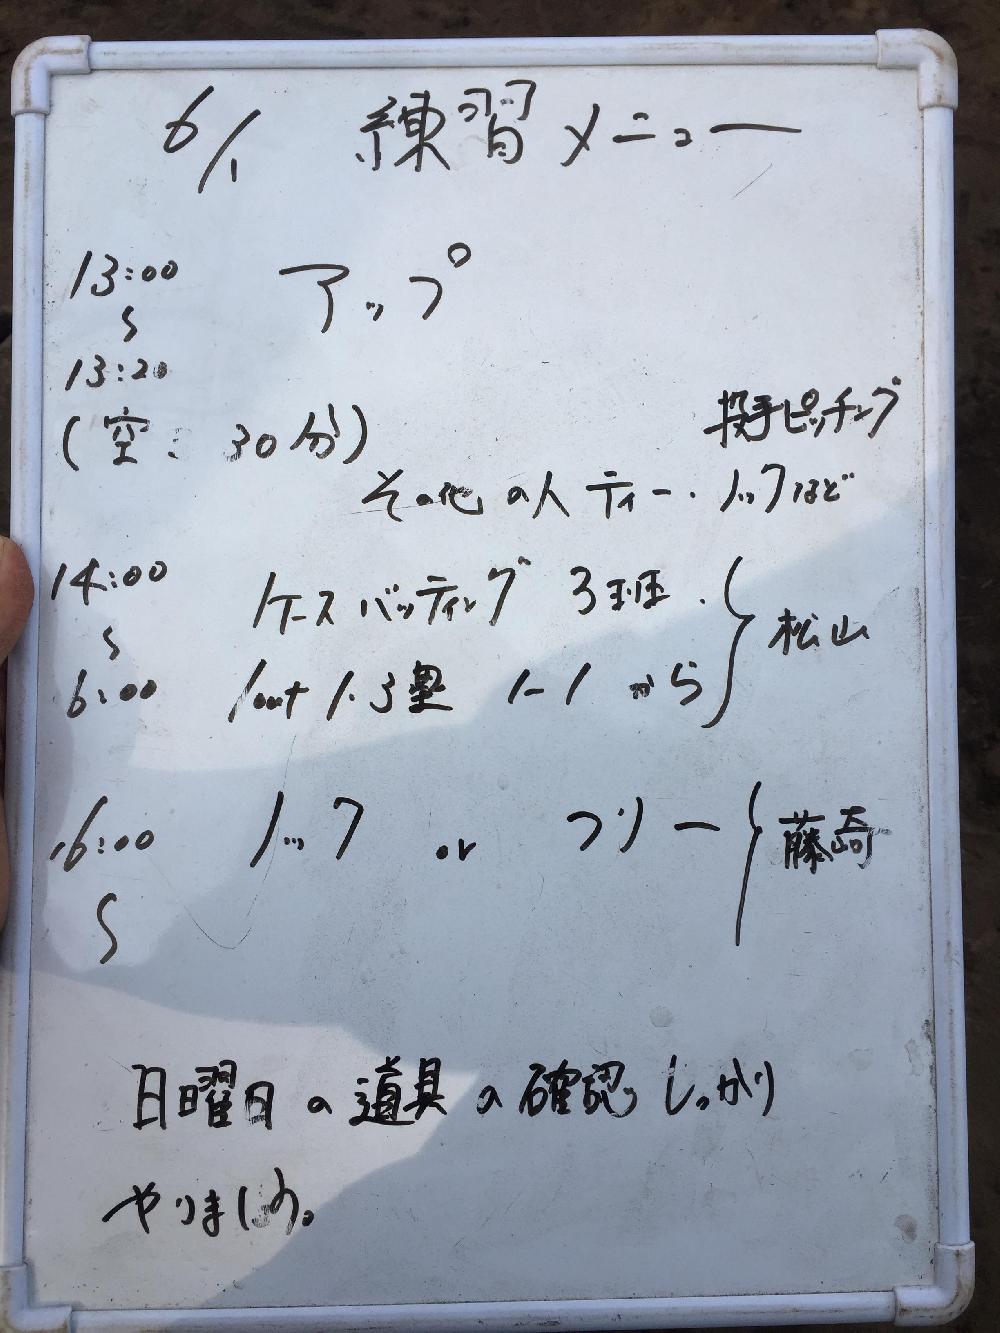 6/1 練習メニュー
13:00 アップ
〜
13:20
(空: 30分)
投手ピッチング
その他の人 ティー・ノックなど
14:00 ケースバッティング 3班.
〜
16:00 1out 1.3塁 1-1 から
松山
16:00 ノック or フリー 藤崎
〜
日曜日の道具の確認しっかり
やりましょう。